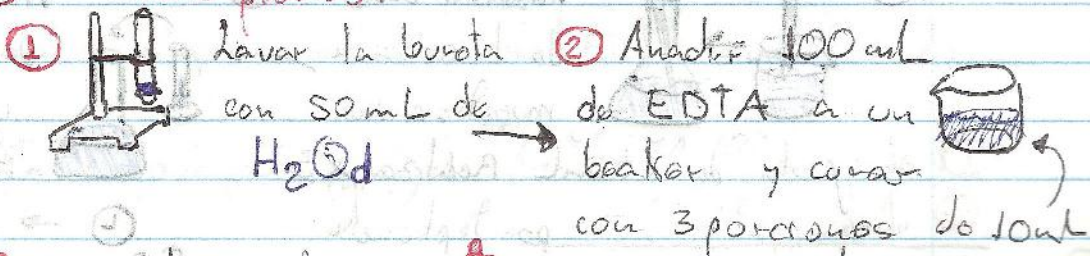 ① Lavar la bureta
con 50 mL de
H₂Od
② Añadir 100 mL
de EDTA a un
beaker y curar
con 3 porciones de 10mL